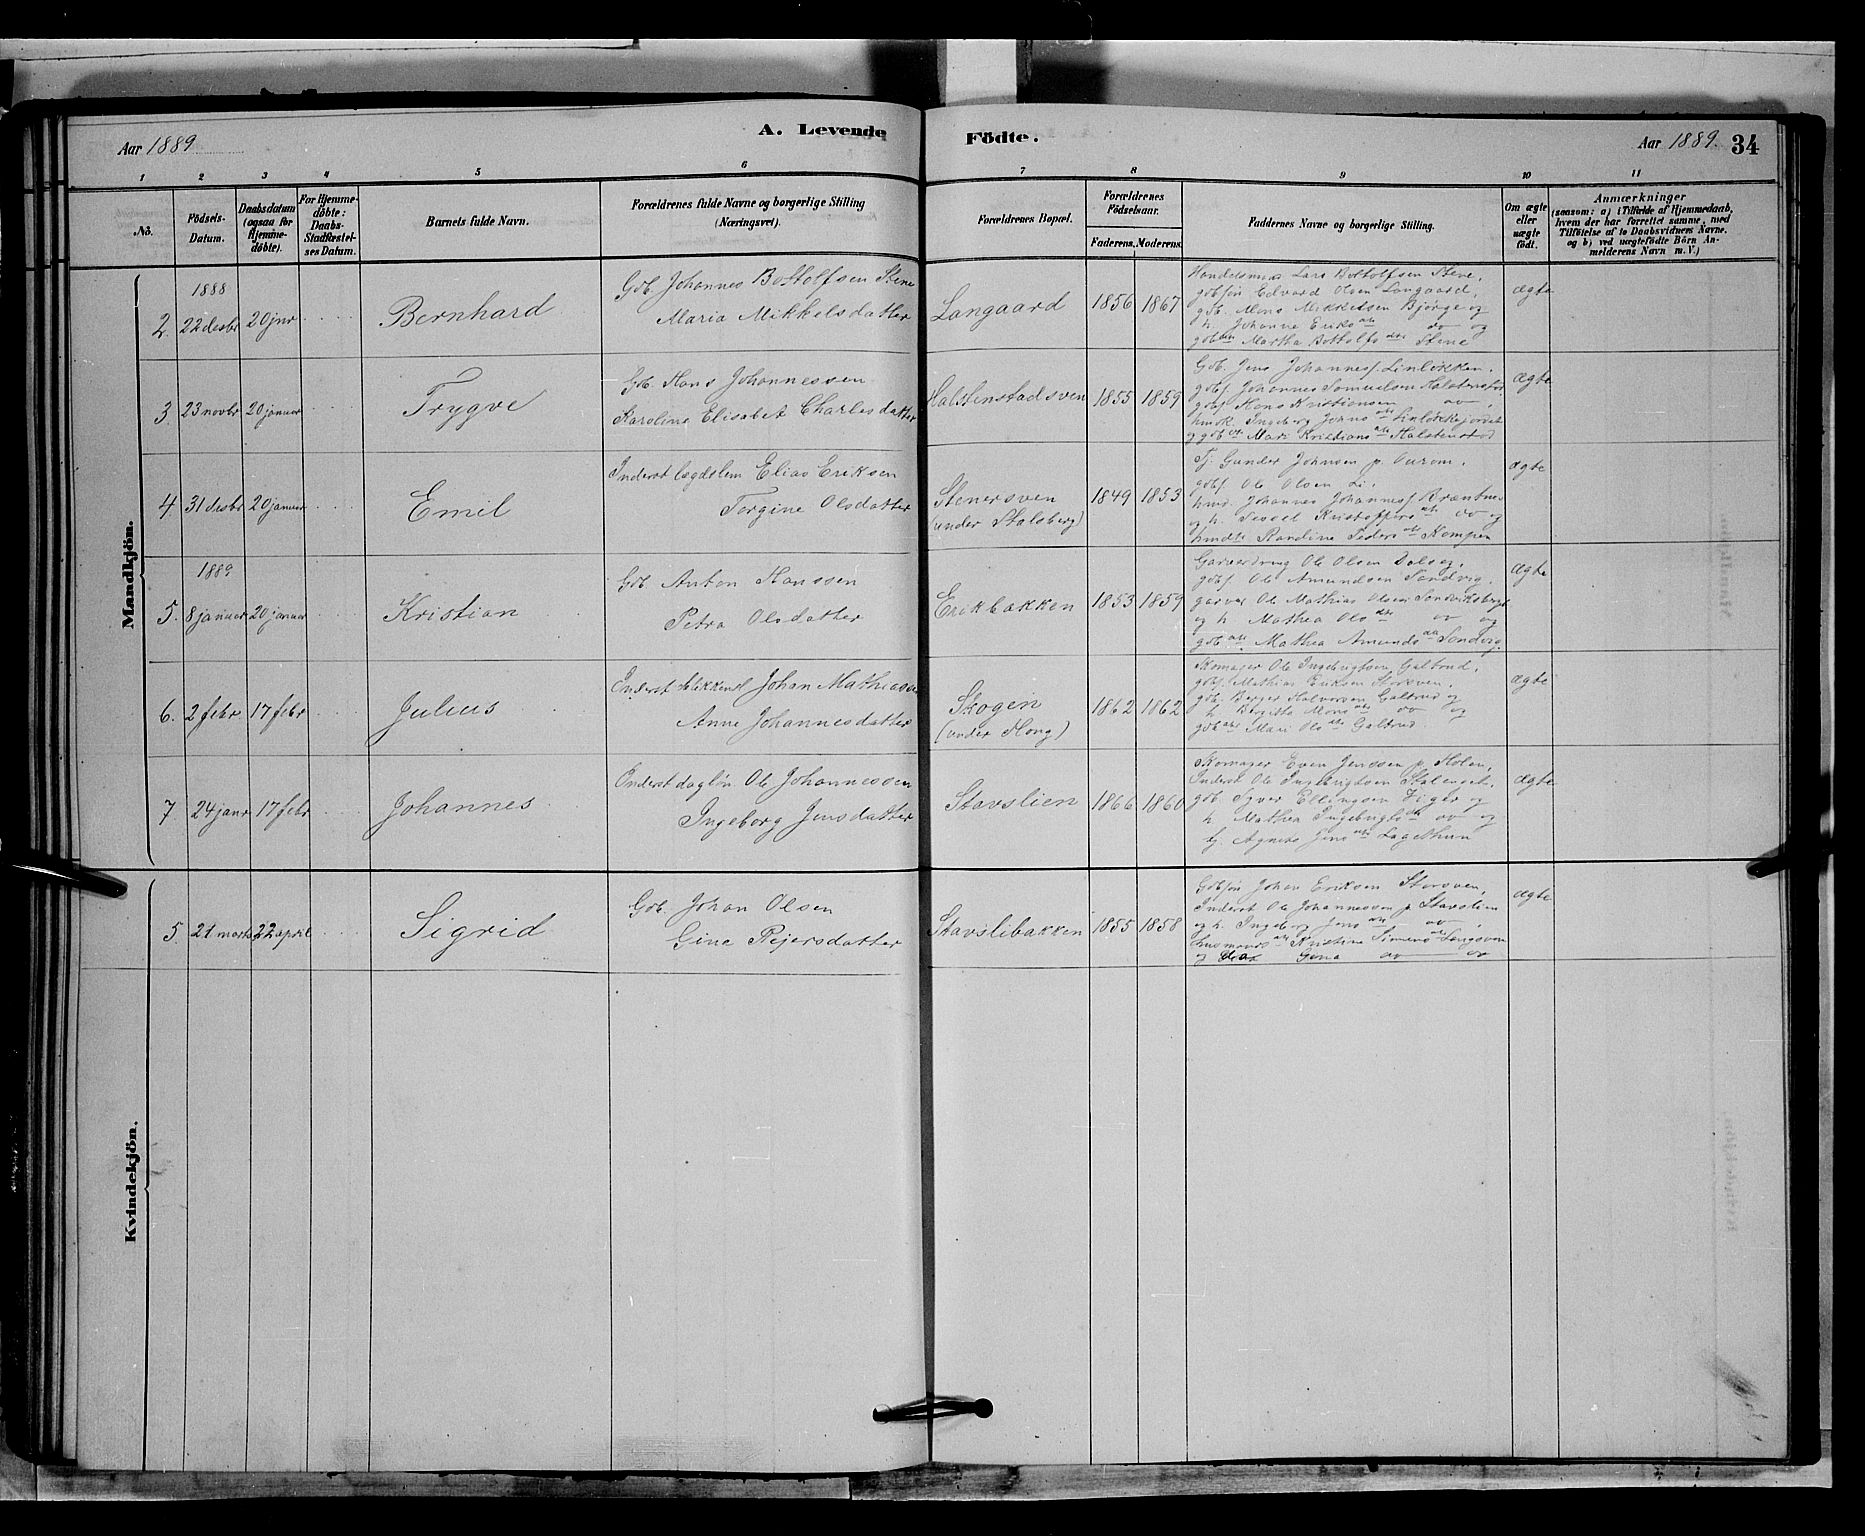 Aar 1889
A. Levende
Födte.
Aar 1889.
34
1 2 3 4 5 6 7 8 9 10 11
No.
Födsels-
Datum.
Daabsdatum
(ogsaa for
Hjemme-
döbte).
For Hjemme-
döbte:
Daabs-
Stadfæstel-
ses Datum.
Barnets fulde Navn.
Forældrenes fulde Navne og borgerlige Stilling
(Næringsvei).
Forældrenes Bopæl.
Forældrenes
Födselsaar.
Faderens. Moderens.
Faddernes Navne og borgerlige Stilling.
Om ægte
eller
uægte
födt.
Anmærkninger
(saasom: a) i Tilfælde af Hjemmedaab,
hvem der har forrettet samme, med
Tilföielse af to Daabsvidners Navne.
og b) ved uægtefödte Börn An-
melderens Navn m.V.)
Mandkjön.
1888
2. 22 desbr 20 jnr
Bernhard
Gdb. Johannes Bottolfsen Stene
Maria Mikkelsdatter
Langaard
1856 1867
Handelsmand Lars Bottolfsen Stene,
gdbsön Edvard Olsen Langaard,
gdb. Mons Mikkelsen Bjørge og
h. Johanne Eriks dtr do og
gdb dtr Martha Bottolfs dtr Stene
ægte
3. 23 novbr 20 januar
Trygve
Gdb. Hans Johannessen
Karoline Elisabet Charlesdatter
Halstenstadsven
1855 1859
Gdb. Jens Johannes. Linløkken.
gdbs. Johannes Samuelsen Halstenstad,
gdbs. Hans Kristiansen do,
Ingeborg Johns dtr Linløkkejordet
og gdb dtr Mari Kristians dtr Halstenstad
ægte
4. 31 desbr 20 januar
Emil
Inderst lægdslem Elias Eriksen
Torgine Olsdatter
Stenersven
(under Stalsberg)
1849 1853
Tj. Gunder Johnsen p. Aurom.
gdbs. Ole Olsen Li.
hmd. Johannes Johannes.
og h. Sessel Kristoffers dtr do og
hmdts Randine Peders dtr Kampen
ægte
1889
5. 8 januar 20 januar
Kristian
Gdb. Anton Hanssen
Petra Olsdatter
Erikbakken
1853 1859
Garverdreng Ole Olsen Dalseg,
gdbs. Ole Amundsen Sandvig.
garver Ole Mathias Olsen Sandviksberget
og h. Mathea Ols dtr do og
gdb dtr. Mathea Amunds dtr Sandvig.
ægte
6. 2 febr 17 febr
Julius
Inderst blikkensl Johan Mathiasen
Anne Johannesdatter
Skogen
(under Hong)
1862 1862
Skomager Ole Ingebrigtsen Galtrud.
gdbs. Mathias Eriksen Storsven.
gdb. Berger Halvorsen Galtrud og
h. Birgitte Mons dtr do og
gdb dtr Mari Ols dtr Galtrud.
ægte
7. 24 janr 17 febr
Johannes
Inderst dagløn Ole Johannessen
Ingeborg Jensdatter
Stavslien
1866 1860
Skomager Even Jenssen p. Holen,
Inderst Ole Ingebrigtsen Stalenget,
gdb. Syver Ellingsen Figer og
h. Mathea Ingebrigts dtr do og
tj. Agnete Jens dtr Lagethun
ægte
Kvindekjön.
5 21 marts 22 april
Sigrid
Gdb. Johan Olsen
Gina Rejersdatter
Stavslibakken
1855 1858
Gdbsön Johan Eriksen Storsven,
Inderst Ole Johannessen p Stavslien
og h. Ingeborg Jens dtr do,
husmands dtr Kristine Simens dtr Langsven
og Gina do do
ægte